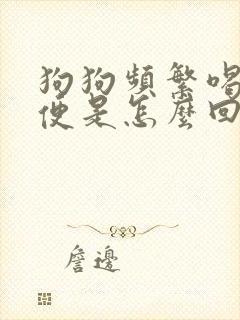 狗狗頻繁喝
便是怎麼回
詹邊